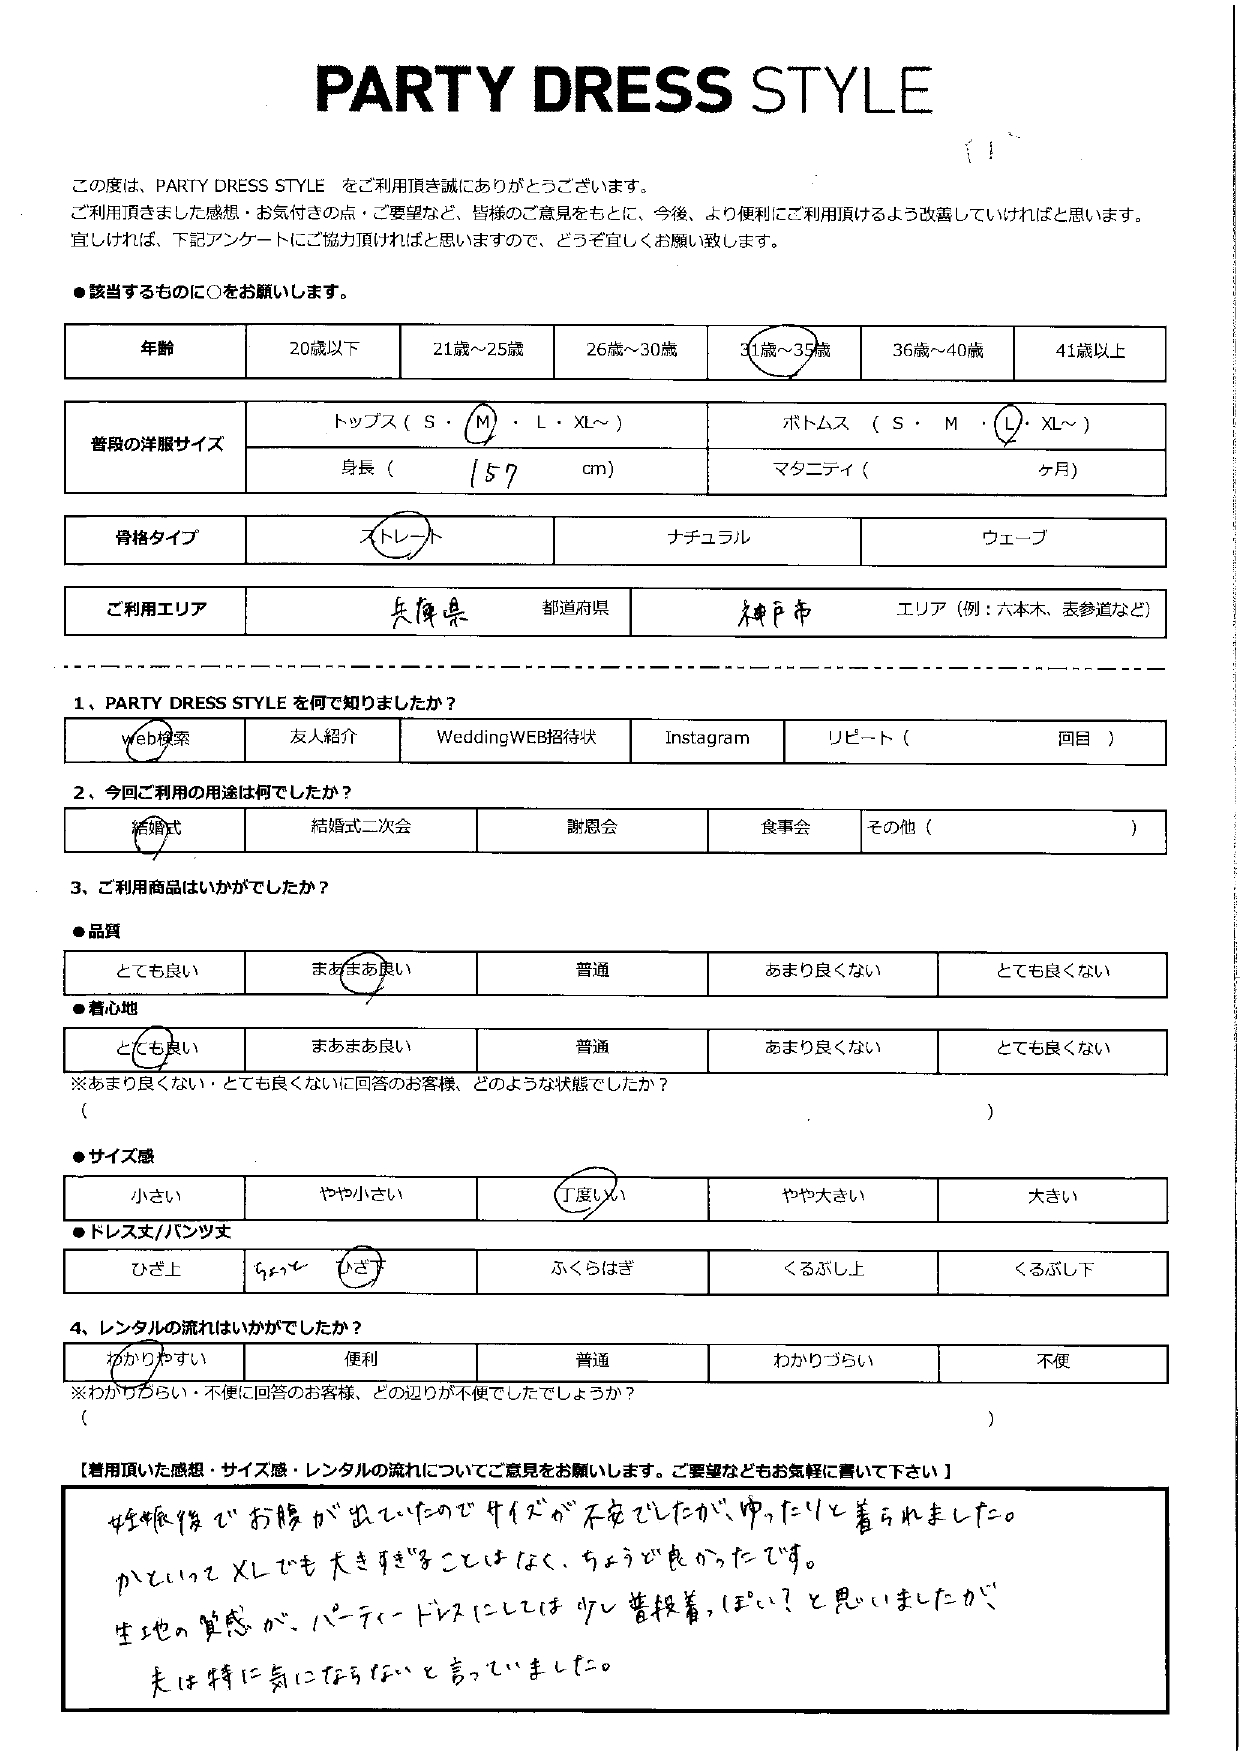 PARTY DRESS STYLE
この度は、PARTY DRESS STYLE をご利用頂き誠にありがとうございます。
ご利用頂きました感想・お気付きの点・ご要望など、皆様のご意見をもとに、今後、より便利にご利用頂けるよう改善していければと思います。
宜しければ、下記アンケートにご協力頂ければと思いますので、どうぞ宜しくお願い致します。
●該当するものに○をお願いします。
年齢 20歳以下 21歳～25歳 26歳～30歳 31歳～35歳 36歳～40歳 41歳以上
普段の洋服サイズ トップス ( S ・ M ・ L ・ XL～ ) ボトムス ( S ・ M ・ L ・ XL～ )
身長 ( 157 cm) マタニティ ( ヶ月)
骨格タイプ ストレート ナチュラル ウェーブ
ご利用エリア 兵庫県 都道府県 神戸市 エリア (例：六本木、表参道など)
1、PARTY DRESS STYLE を何で知りましたか？
web検索 友人紹介 WeddingWEB招待状 Instagram リピート ( 回目 )
2、今回ご利用の用途は何でしたか？
結婚式 結婚式二次会 謝恩会 食事会 その他 ( )
3、ご利用商品はいかがでしたか？
●品質
とても良い まあまあ良い 普通 あまり良くない とても良くない
●着心地
とても良い まあまあ良い 普通 あまり良くない とても良くない
※あまり良くない・とても良くないに回答のお客様、どのような状態でしたか？
( )
●サイズ感
小さい やや小さい 丁度いい やや大きい 大きい
●ドレス丈/パンツ丈
ひざ上 ちょっと ひざ下 ふくらはぎ くるぶし上 くるぶし下
4、レンタルの流れはいかがでしたか？
わかりやすい 便利 普通 わかりづらい 不便
※わかりづらい・不便に回答のお客様、どの辺りが不便でしたでしょうか？
( )
【着用頂いた感想・サイズ感・レンタルの流れについてご意見をお願いします。ご要望などもお気軽に書いて下さい】
妊娠後でお腹が出ていたのでサイズが不安でしたが、ゆったりと着られました。
かといってXLでも大きすぎることはなく、ちょうど良かったです。
生地の質感が、パーティードレスにしては少し普段着っぽい？と思いましたが、
夫は特に気にならないと言っていました。